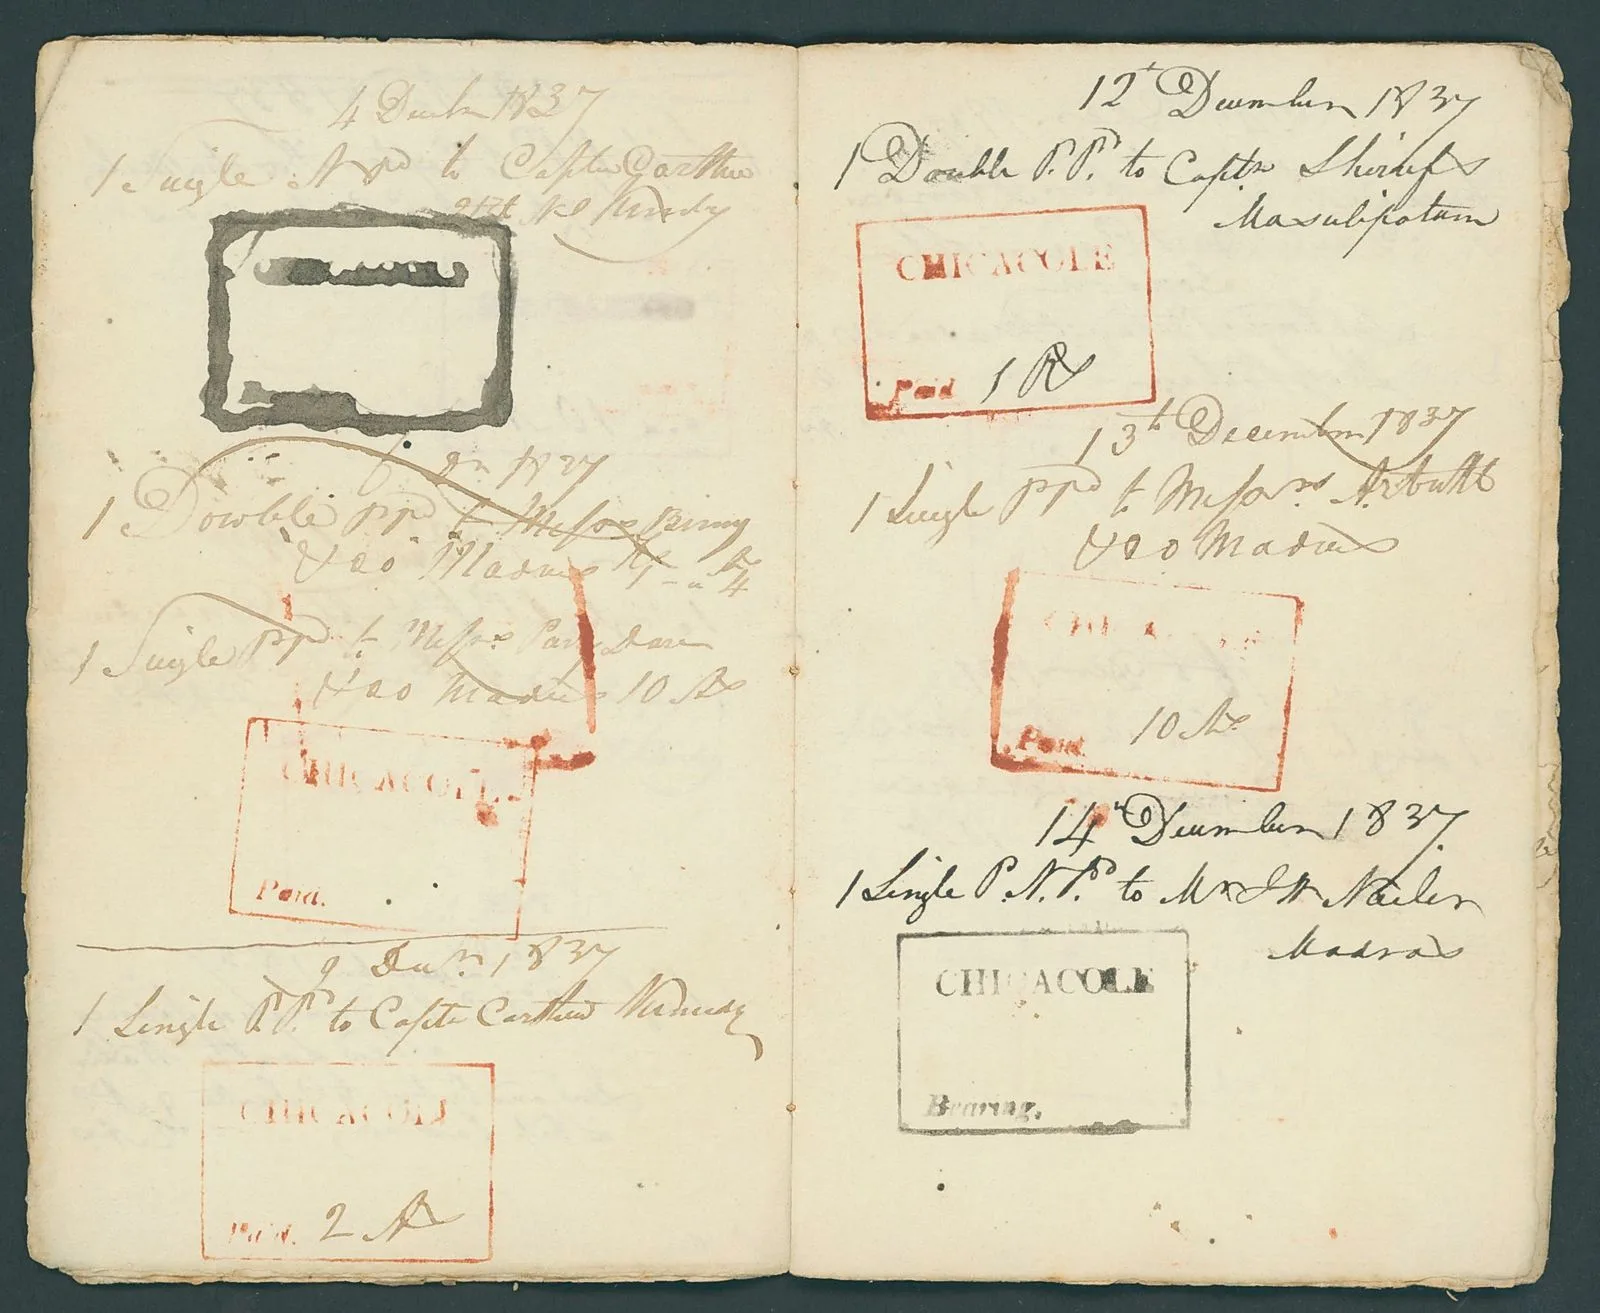 4 Decbr 1837
1 Single N ppd to Captn Carthew
21st N I
Dr 1837
1 Double ppd to Messrs Binny
& Co Madras
1 Single ppd to Messrs Parry Dare
& Co Madras 10 As
CHICACOLE
Paid.
9 Decr. 1837
1 Single P.Pd to Captn Carthew
CHICACOLE
Paid. 2 As
12t December 1837
1 Double P.Pd. to Captn Shirrefs
Masulipatam
CHICACOLE
Paid 1 Rs
13th December 1837
1 Single ppd to Messrs Arbuth
& Co Madras
CHICACOLE
Paid. 10 As
14th December 1837
1 Single P.N.Pd to Mr J W Nailer
Madras
CHICACOLE
Bearing.